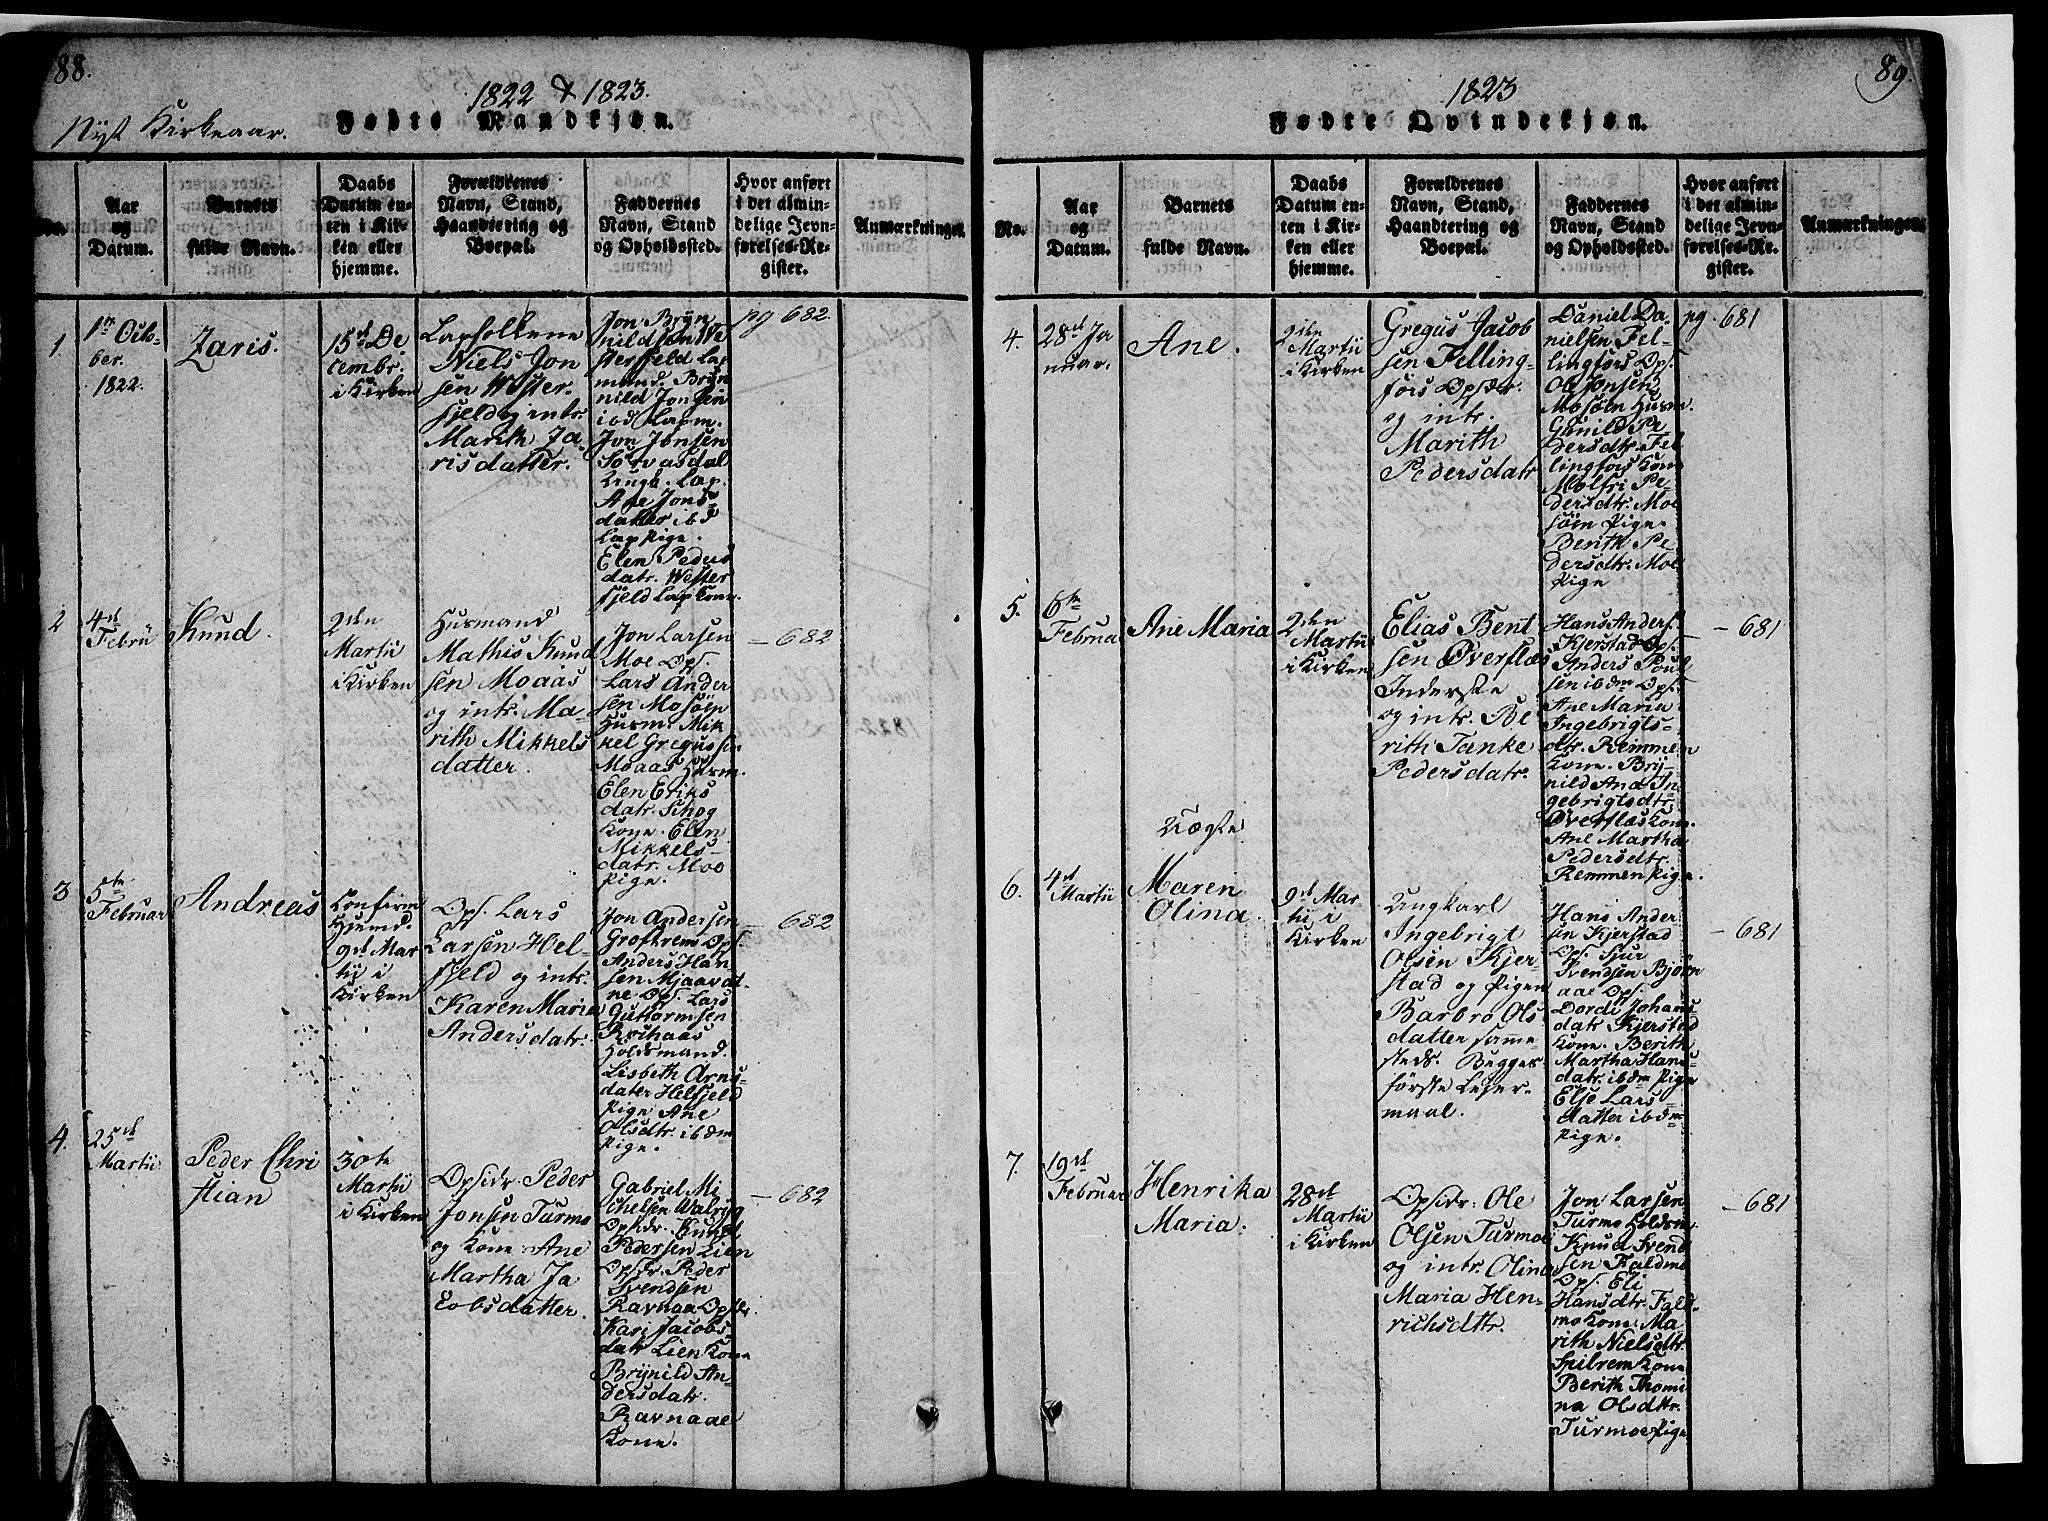 88.
1822 & 1823.
Nyt Kirkeaar.
Fødte Mandkjøn.
No.
Aar og Datum.
Barnets fulde Navn.
Daabs Datum enten i Kirken eller hjemme.
Forældrenes Navn, Stand, Haandtering og Boepæl.
Faddernes Navn, Stand og Opholdssted.
Hvor anført i det almindelige Jevnførelses-Register.
Anmærkninger.
1.
1m Octo-
ber.
1822.
Zaris.
15d De
cembr.
i Kirken
Lapfolkene
Niels Jon
sen Wester
fjeld og intr.
Marith Ja
risdatter.
Jon Bryn
nildsøn We
sterfjeld Lap
mand. Bryn
nild Jonsen
ibd Lapm.
Jon Jonsen
Sørvasdal
Ane Jons
datter ibd
Lap Pige.
Elen Peders
datr. Wester
fjeld Lap Kone.
pg 682
2
4d
Febrü
Knud.
2den
Martii
i Kirken
Husmand
Mathis Knud
sen Moaas
og intr. Ma-
rith Mikkels
datter.
Jon Larsen
Moe Ops.
Lars Ander
sen Mosøen
Husm. Mik
kel Gregussen
Moaas Husm.
Elen Eriks
datr. Schog
Kone. Elen
Mikkels-
datr. Moe
Pige.
– 682
3
5te
Februar
Andreas
Confirm
Hiemd.
9d Mar
tii i
Kirken
Ops. Lars
Larsen Hel-
fjeld og intr.
Karen Maria
Andersdatr.
Jon Andersen
Groftrem Ops.
Anders Han
sen Mjaavat
ne Ops. Lars
Guttormsen
Røshaas
Holdsmand.
Lisbeth Arns-
dater Helfjeld
Pige Ane
Olsdtr. ibdm
Pige.
– 682
4.
25d
Martii
Peder Chri
stian
30te
Martii
i Kirken
Opsidr. Peder
Jonsen Turmo
og Kone Ane
Martha Ja
cobsdatter.
Gabriel Mi
chelsen Walryg
Opsidr. Knud
Pedersen Lien
Opsidr. Peder
Svendsen
Ravnaa Opsidr.
Kari Jacobs
datr. Lien Kone
Brynild An
dersdatr.
Ravnaae
Kone.
– 682
89.
1823
Fødte Qvindekjøn.
No.
Aar og Datum.
Barnets fulde Navn.
Daabs Datum enten i Kirken eller hjemme.
Forældrenes Navn, Stand, Haandtering og Boepæl.
Faddernes Navn, Stand og Opholdssted.
Hvor anført i det almindelige Jevnførelses-Register.
Anmærkninger.
4.
28d Ja
nuar.
Ane.
2den
Martii
i Kirken
Gregus Jacob
sen Felling-
fors Opsidr.
og intr.
Marith
Pedersdatr
Daniel Da
nielsen Fel-
lingfors Ops.
Ole Jonsen
Mosøen Husm.
Gunild Pe
dersdtr. Fel-
lingfors Kone
Molfri Pe-
dersdtr. Moe
søen Pige.
Berith Pe-
dersdtr. Moe
Pige
pg. 681
5.
6te
Februar
Ane Maria
2den
Martii
i Kirken
Elias Bent
sen Øverflæs
Inderste
og intr. Be
rith Tanke
Pedersdatr.
Hans Anders.
Kjerstad Ops.
Anders Poul
sen ibdm Ops.
Ane Maria
Ingebrigts-
dtr. Remmen
Kone. Bry-
nild Ana In
gebrigtsdtr.
Øverflæs Kone.
Ane Martha
Pedersdtr.
Remmen Pige.
– 681
Uægte
6.
4d
Martii
Maren
Olina.
9d Mar-
tii i
Kirken
Ungkarl
Ingebrigt
Olsen Kjer-
stad og Pigen
Barbro Ols
datter samme
steds. Begges
første Lejer-
maal.
Hans Ander
sen Kjerstad
Ops. Sjur
Svendsen Bjørn
aae Ops.
Dordi Johans
datr Kjerstad
Kone. Berith
Martha Hans
datr. ibdm Pige
Else Lars
datter ibdm
Pige.
– 681
7.
19d
Februar
Henrika
Maria.
28d
Martii
i Kirken
Opsidr. Ole
Olsen Turmoe
og intr. Olina
Maria Hen-
richsdtr.
Jon Larsen
Turmo Holdsm.
Knud Svend
sen Faldmo
Ops. Eli
Hansdtr. Fald-
mo Kone. Ma
rith Nielsdtr.
Spilrem Kone
Berith Thomi
na Olsdtr.
Turmoe Pige
– 681